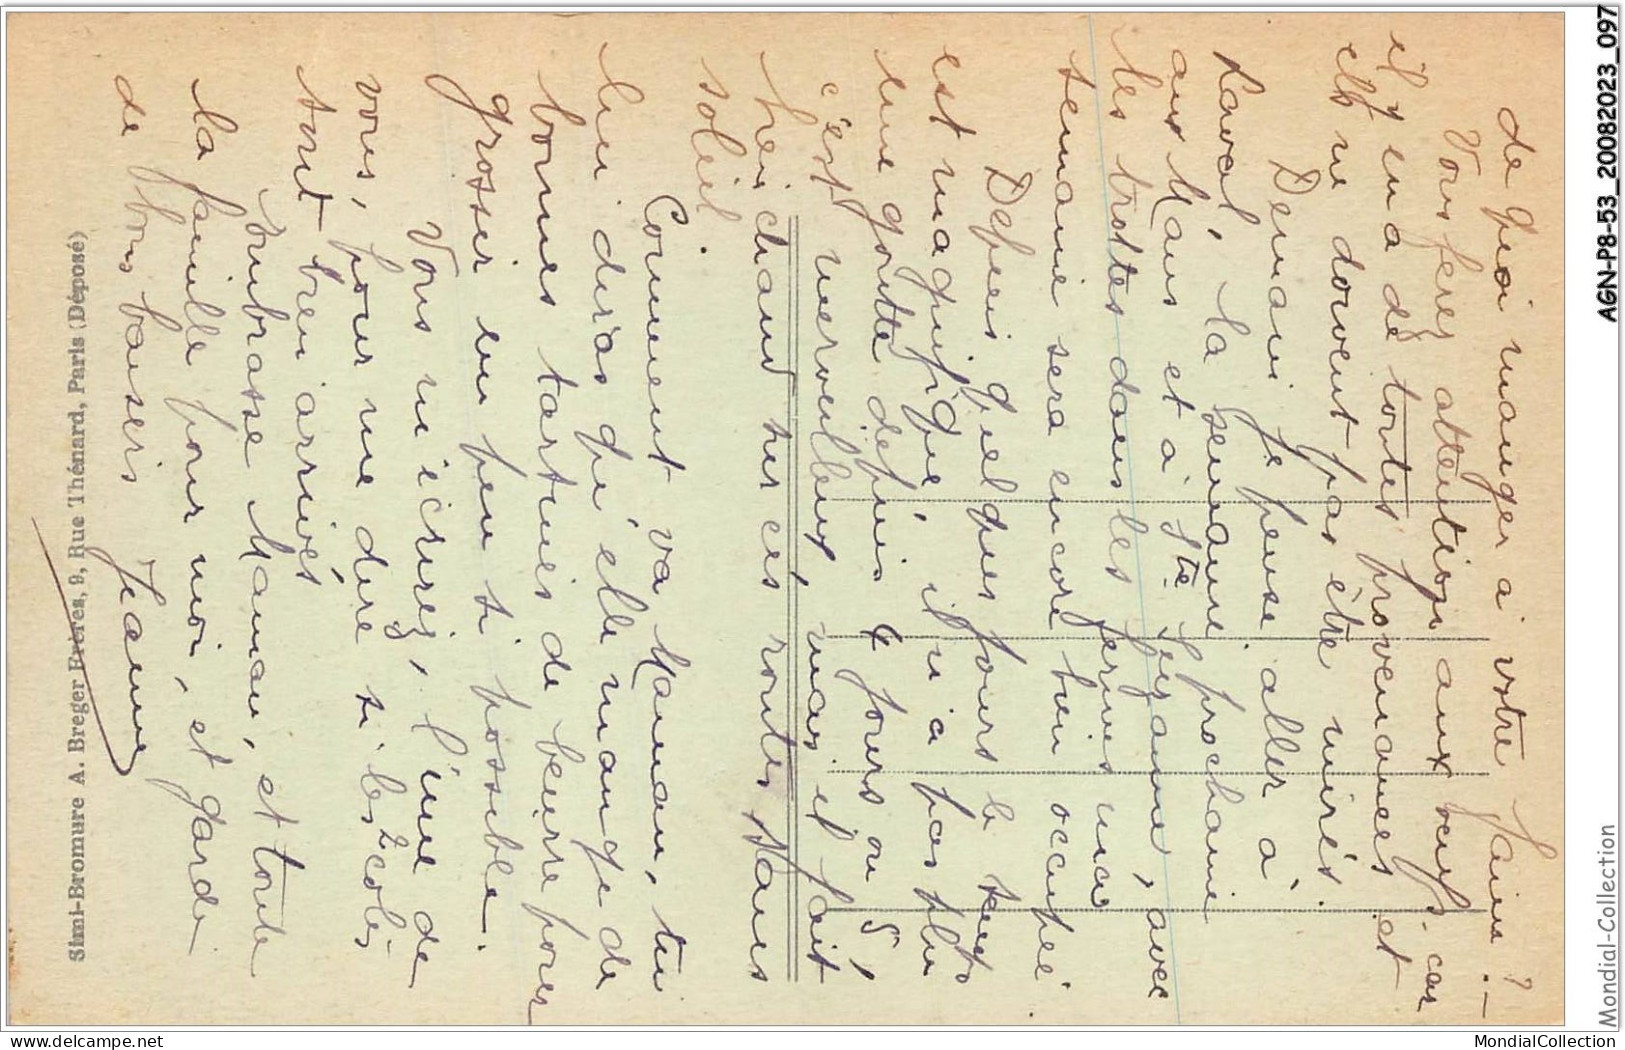 de quoi manger à votre faim ? . —
Vous ferez attention aux œufs, car
il y en a de toutes provenances et
ils ne doivent pas être mirés.
Demain je pense aller à
Laval, la semaine prochaine
au Mans et à Ste Suzanne, avec
les trottes dans les fermes ma
semaine sera encore bien occupée
Depuis quelques jours le temps
est magnifique, il n'a pas plu
une goutte depuis 4 jours ou 5,
c'est merveilleux, mais il fait
bien chaud sur ces routes sans
soleil.
Comment va Maman, tu
lui diras qu'elle mange de
bonnes tartines de beurre pour
grossir un peu si possible.
Vous m'écrirez, l'une de
vous, pour me dire si les 2 colis
sont bien arrivés.
Embrasse Maman, et toute
la famille pour moi, et garde
de bons baisers
Jeanne
Simi-Bromure A. Breger Frères, 9, Rue Thénard, Paris (Déposé)
AGN-P8-53_20082023_097
Mondial-Collection
delcampe.net
MondialCollection